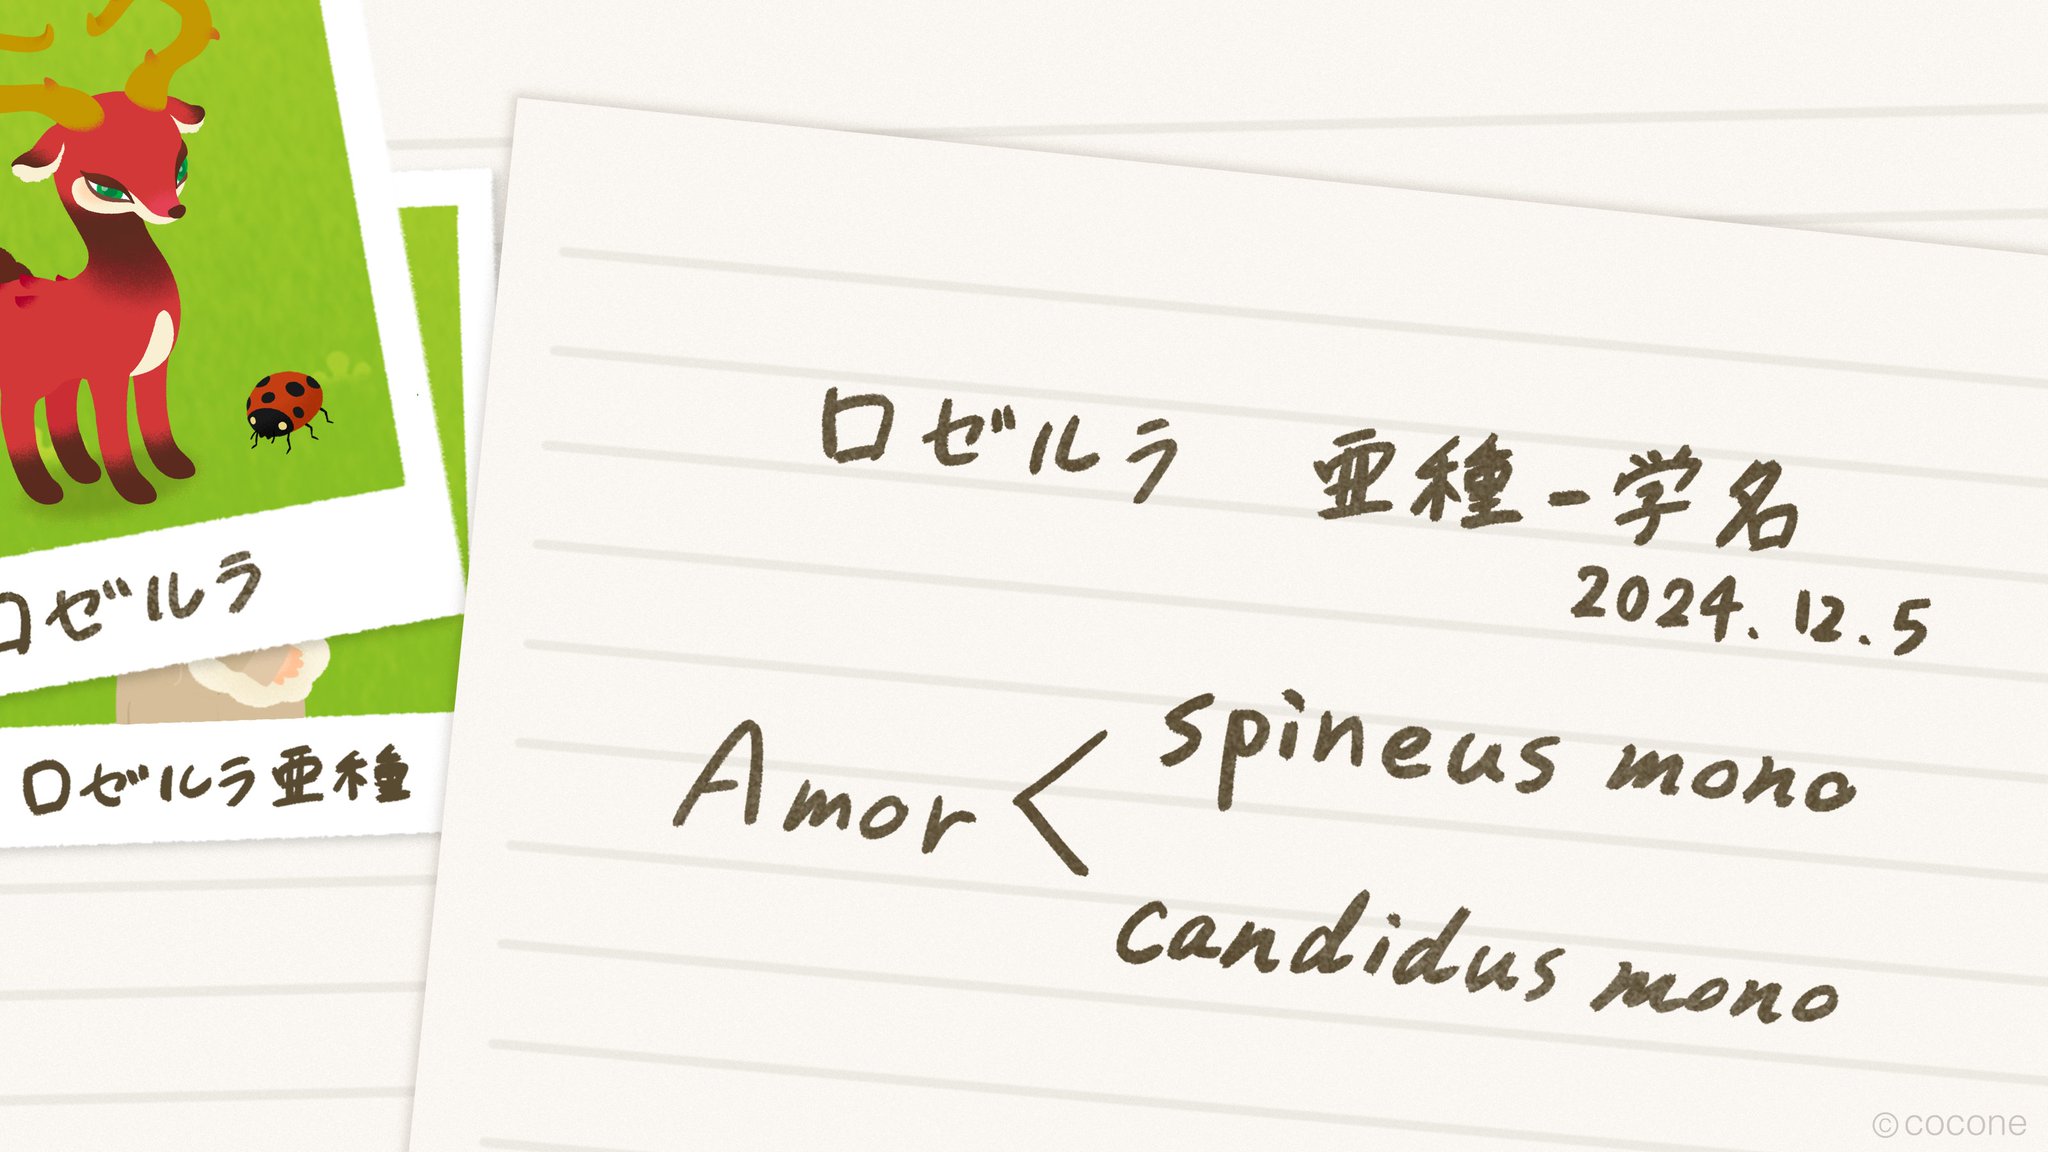 ロゼルラ
ロゼルラ亜種
ロゼルラ 亜種-学名
2024.12.5
Amor < spineus mono
candidus mono
©cocone